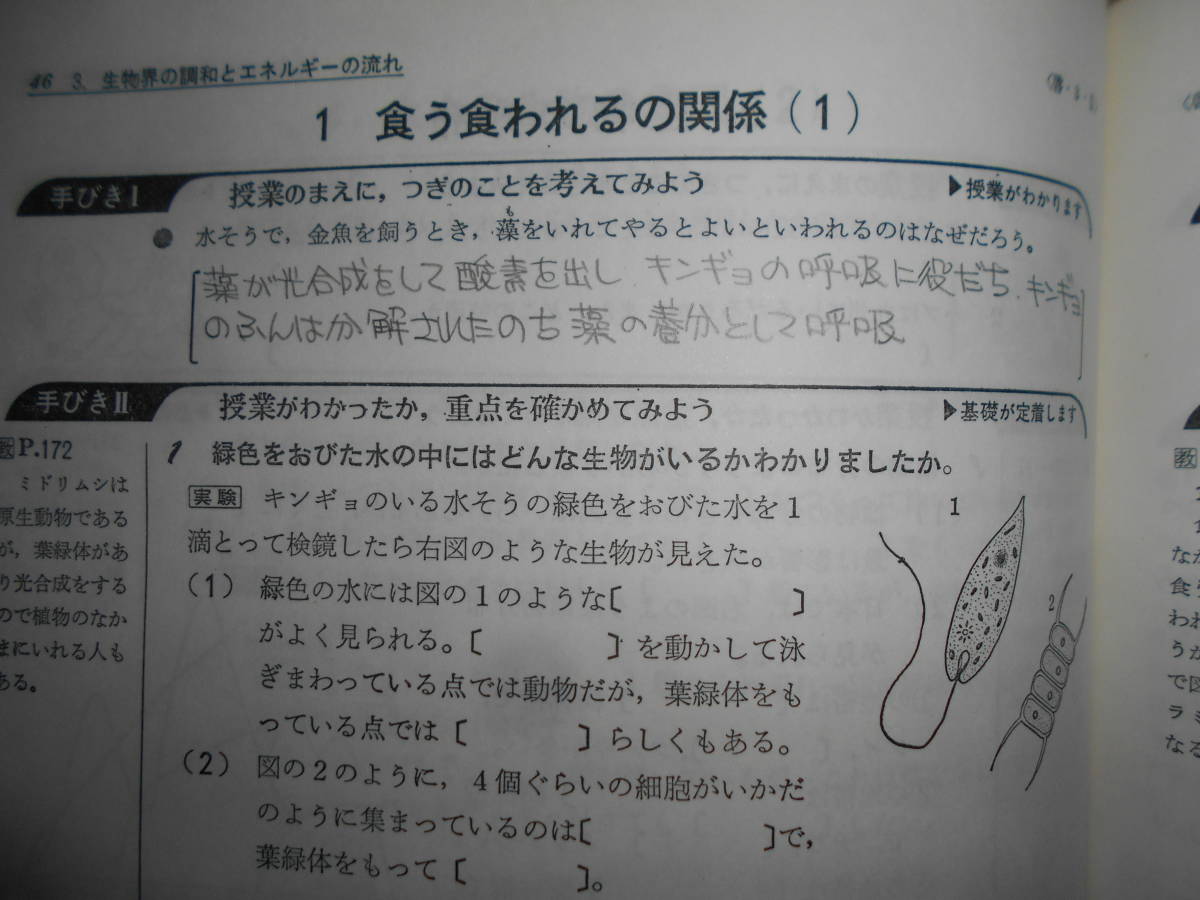 46 3. 生物界の調和とエネルギーの流れ
1 食う食われるの関係(1)
手びきⅠ 授業のまえに，つぎのことを考えてみよう ▶授業がわかります
も
● 水そうで，金魚を飼うとき，藻をいれてやるとよいといわれるのはなぜだろう。
薬が光合成をして酸素を出し キンギョの呼吸に役だち、キンギョ
のふんはか解されたのち 薬の養分として呼吸
手びきⅡ 授業がわかったか，重点を確かめてみよう ▶基礎が定着します
教P.172
ミドリムシは
原生動物である
が，葉緑体があ
り光合成をする
ので植物のなか
まにいれる人も
ある。
1 緑色をおびた水の中にはどんな生物がいるかわかりましたか。
実験 キンギョのいる水そうの緑色をおびた水を1
滴とって検鏡したら右図のような生物が見えた。
(1) 緑色の水には図の1のような〔 〕
がよく見られる。〔 〕を動かして泳
ぎまわっている点では動物だが，葉緑体をも
っている点では〔 〕らしくもある。
(2) 図の2のように，4個ぐらいの細胞がいかだ
のように集まっているのは〔 〕で，
葉緑体をもって〔 〕。
1
2
教
なが
食う
われ
うか
で図
ラミ
なる